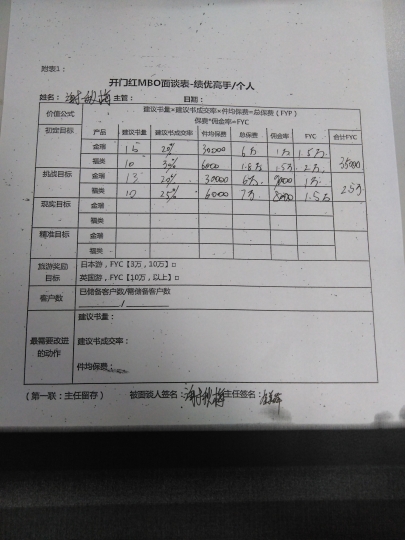 附表1：
开门红MBO面谈表-绩优高手/个人
姓名： 主管： 日期：
价值公式 建议书量×建议书成交率×件均保费=总保费（FYP）
保费*佣金率=FYC
初定目标 产品 建议书量 建议书成交率 件均保费 总保费 佣金率 FYC 合计FYC
金瑞 15 20% 30000 6万 1万 1.5万
福类 10 30% 6000 1.8万 1.5万 2万 35000
挑战目标 金瑞 13 20% 30000 6万 1万
福类 10 25% 60000 7万 8000 1.5万 2.5万
现实目标 金瑞
福类
精准目标 金瑞
福类
旅游奖励目标 日本游，FYC【3万，10万】□
英国游，FYC【10万，以上】□
客户数 已储备客户数/需储备客户数
/
最需要改进的动作 建议书量：
建议书成交率：
件均保费：
（第一联：主任留存） 被面谈人签名： 主任签名：